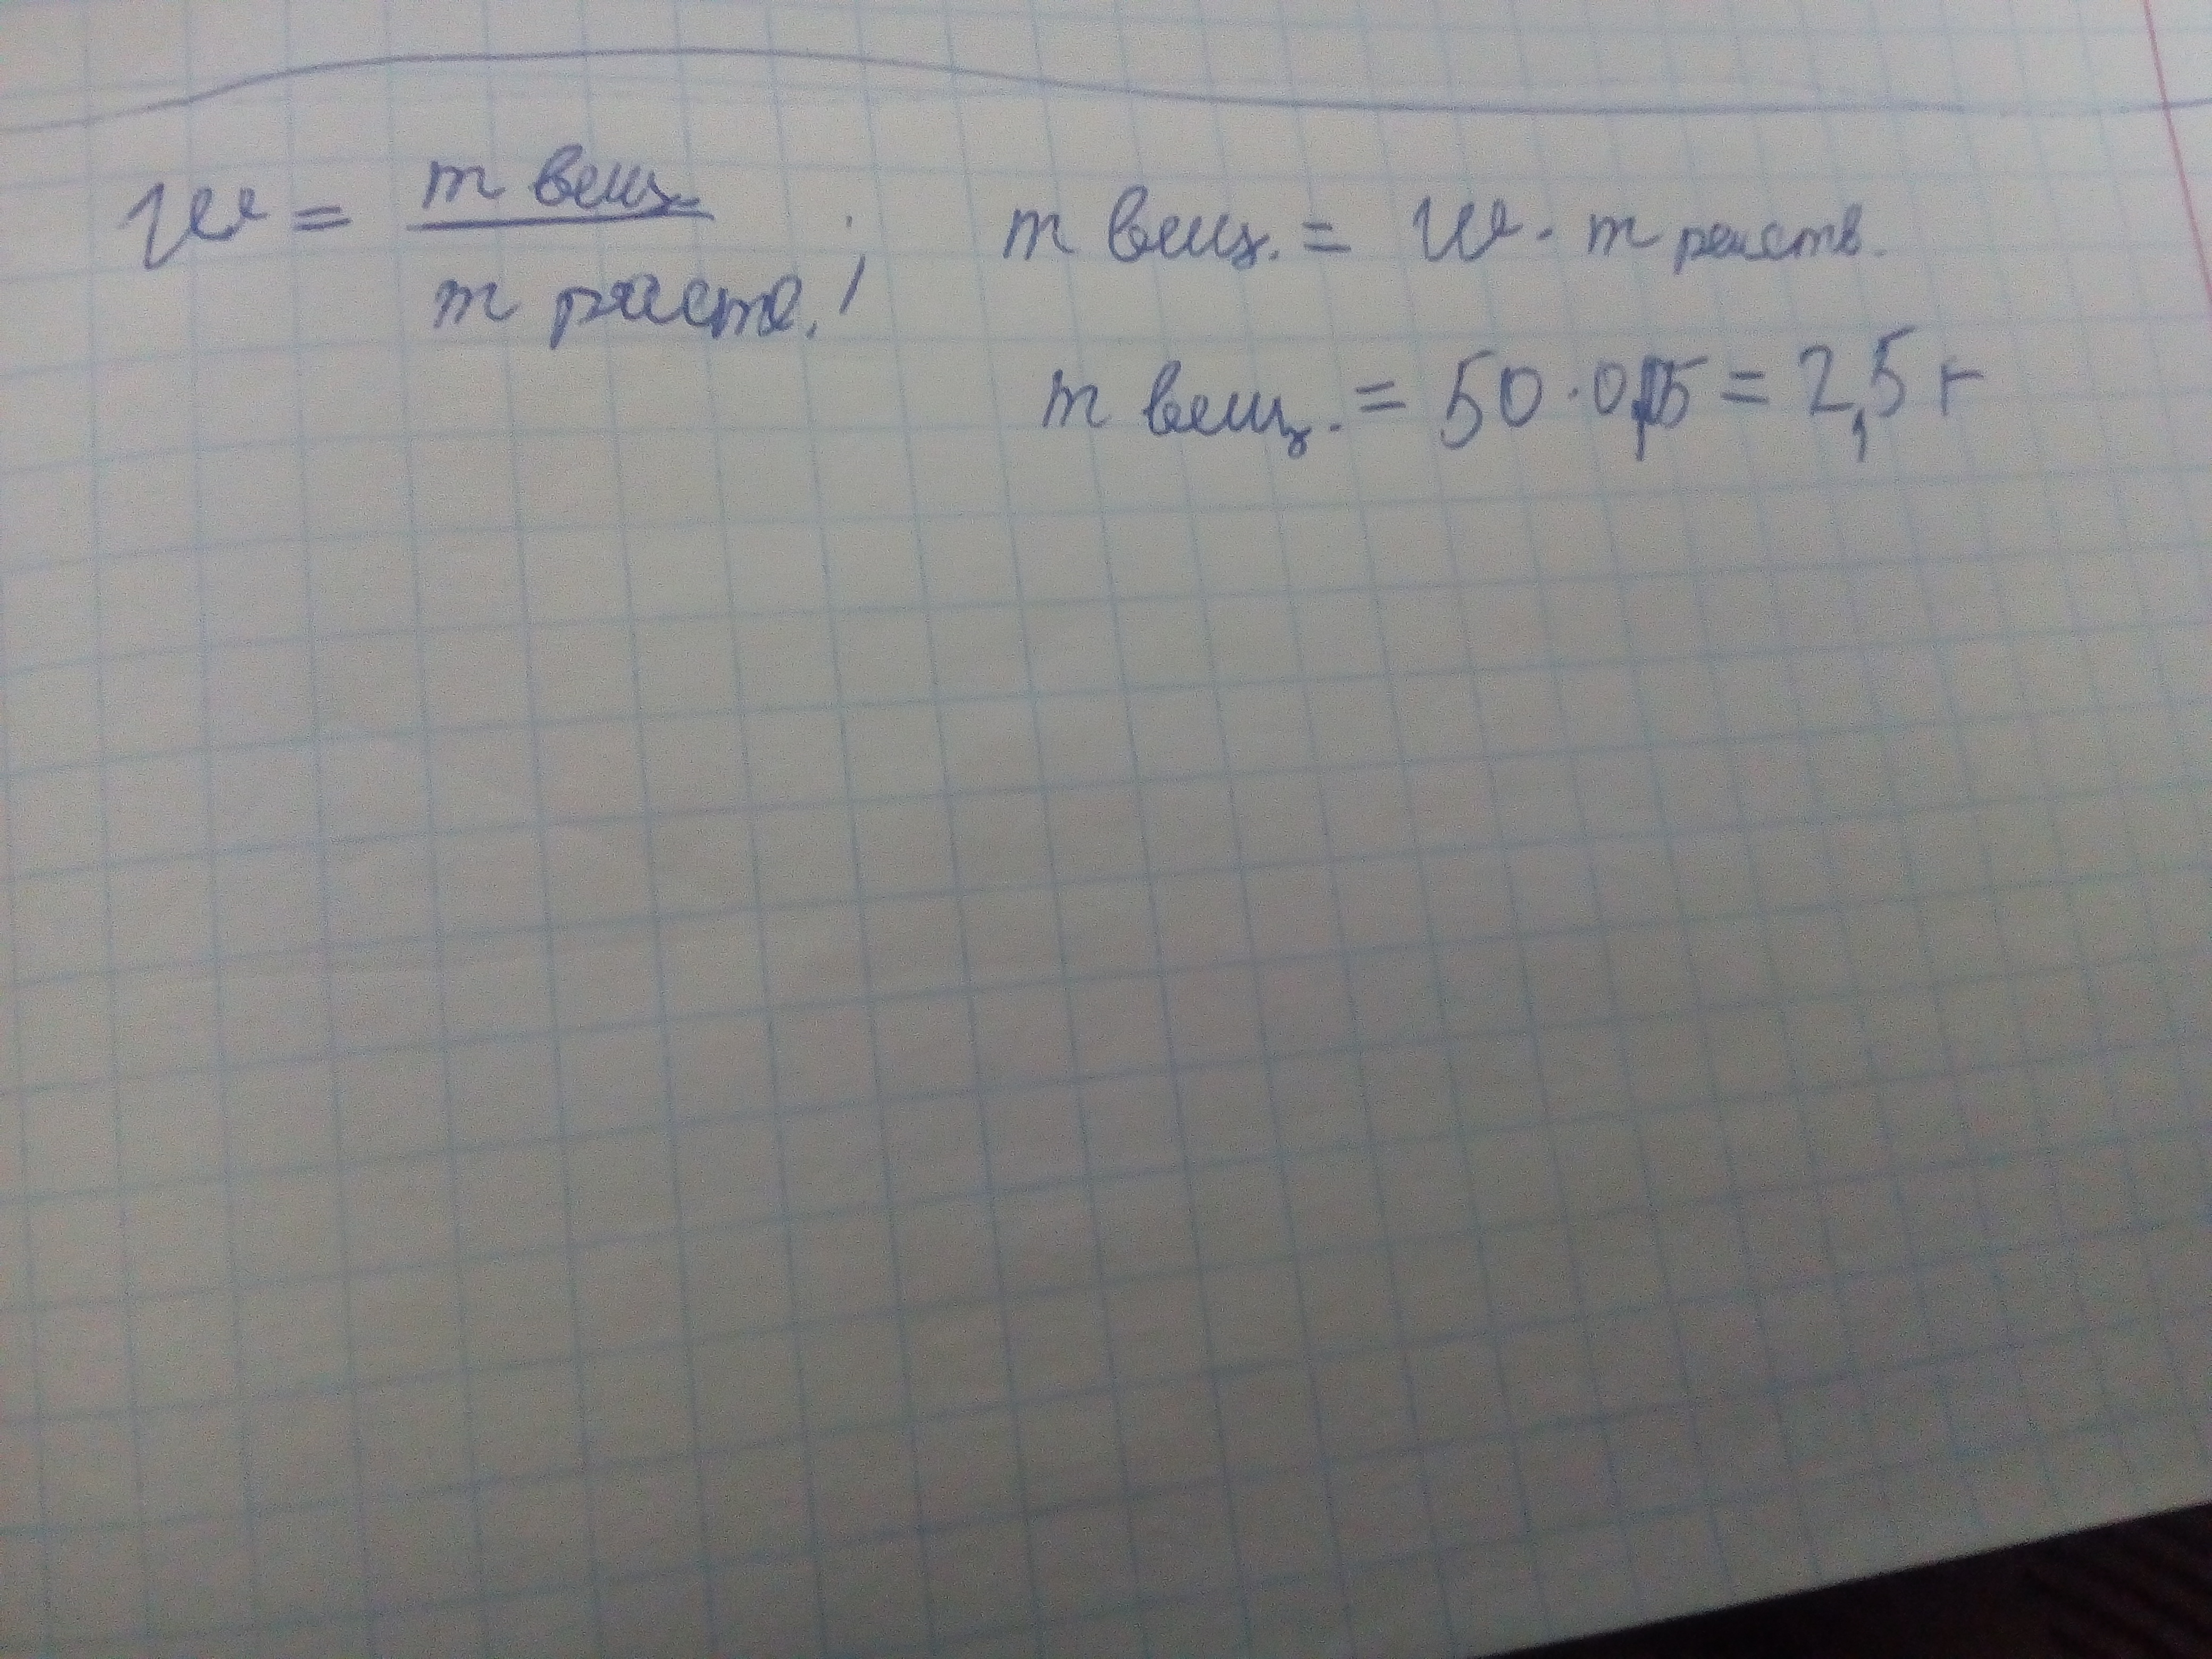 w = m вещ. / m раств. ; m вещ. = w · m раств.
m вещ. = 50 · 0,05 = 2,5 г